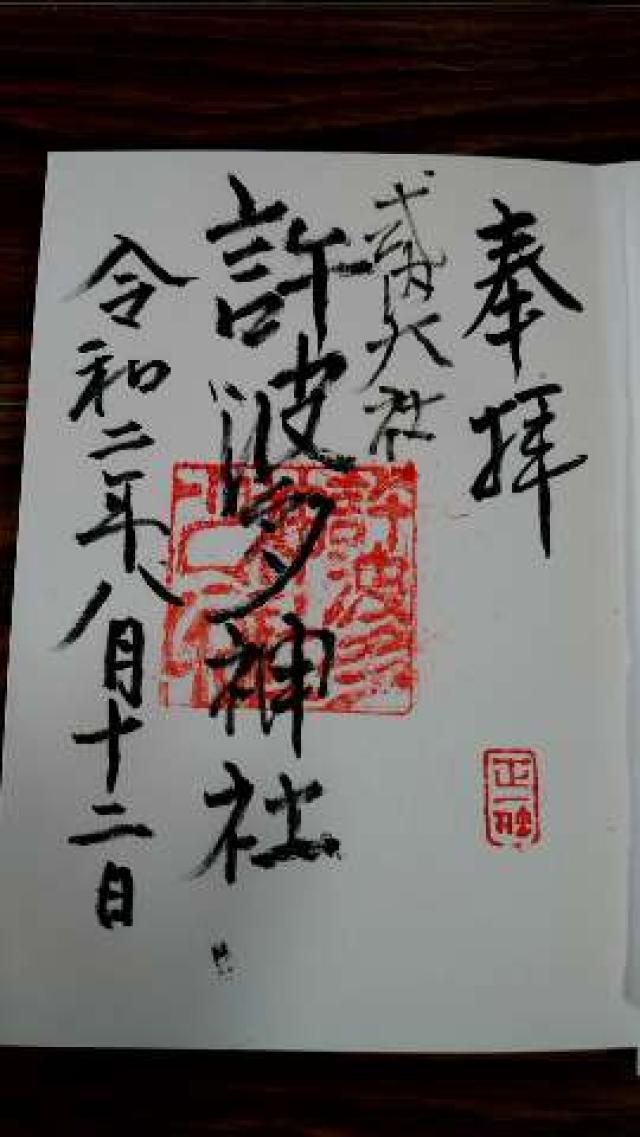 奉拝
式内大社
許波多神社
令和二年八月十二日
許波多
正一位